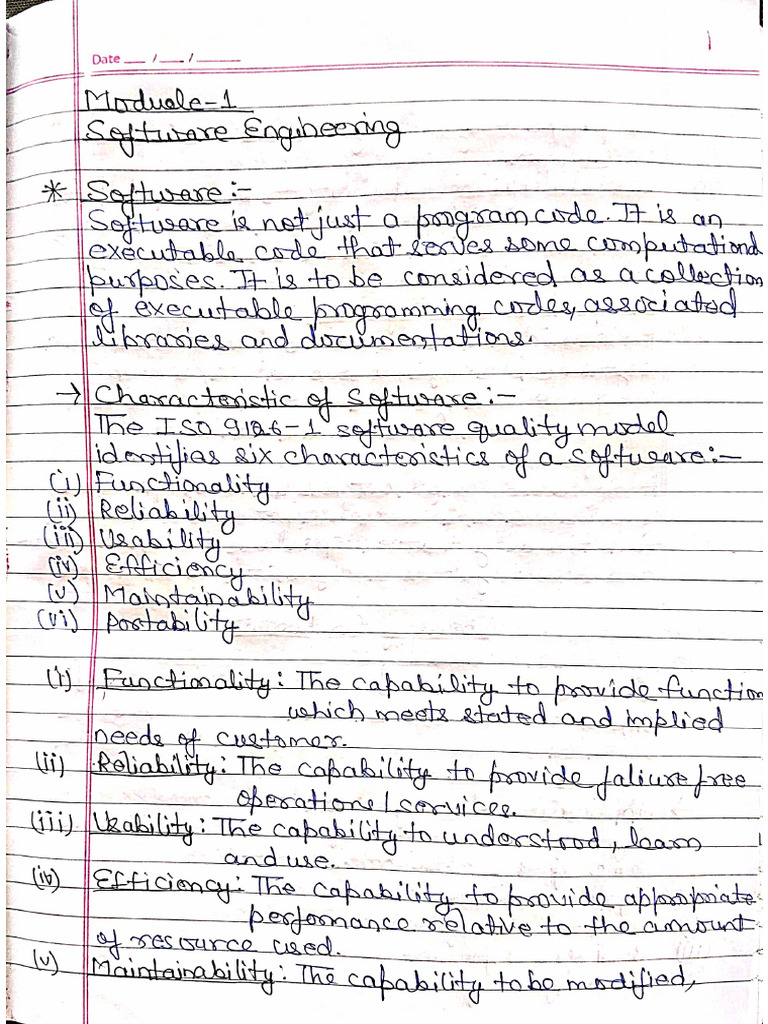 1
Date __ / __ / ____
Moduale-1
Software Engineering
* Software :-
Software is not just a program code. It is an
executable code that serves some computationd
purposes. It is to be considered as a collection
of executable programming codes, associated
libraries and documentations.
→ Characteristic of Software :-
The ISO 9126-1 software quality model
identifies six characteristics of a software :-
(i) Functionality
(ii) Reliability
(iii) Usability
(iv) Efficiency
(v) Maintainability
(vi) Portability
(i) Functionality : The capability to provide function
which meets stated and implied
needs of customer.
(ii) Reliability : The capability to provide faliure free
operations / services.
(iii) Usability : The capability to understood, learn
and use.
(iv) Efficiency : The capability to provide appropriate
performance relative to the amount
of resource used.
(v) Maintainability : The capability to be modified,